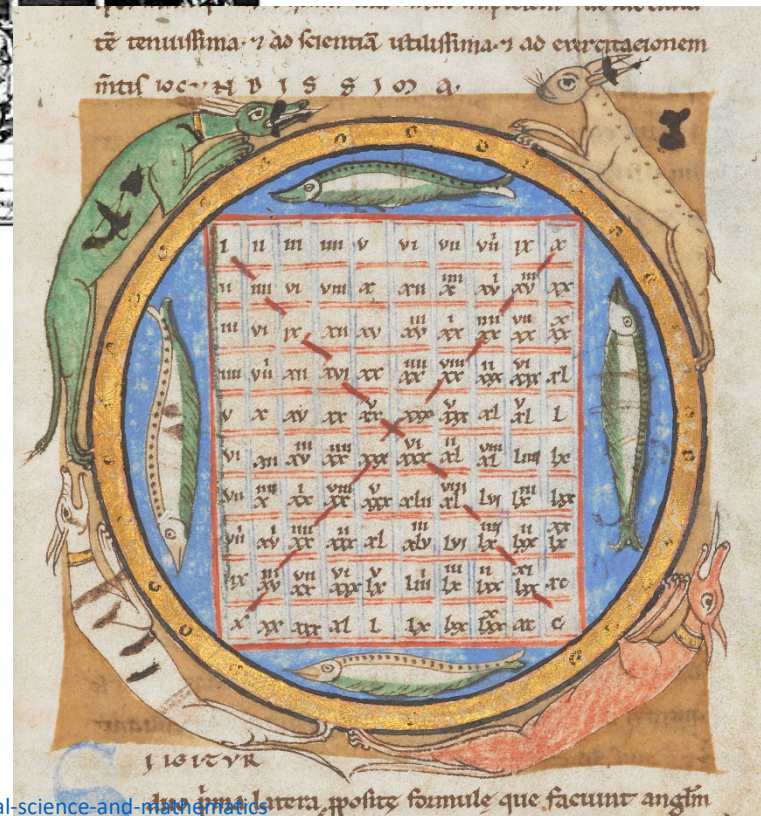 tē tenuissima · ⁊ ad scientiā utilissima · ⁊ ad exercitacionem
m̄tis iocUNDISSIMA.
I ii iii iiii v vi vii viii ix x
ii iiii vi viii x xii xiiii xvi xviii xx
iii vi ix xii xv xviii xxi xxiiii xxvii xxx
iiii viii xii xvi xx xxiiii xxviii xxxii xxxvi xl
v x xv xx xxv xxx xxxv xl xlv L
vi xii xviii xxiiii xxx xxxvi xlii xlviii liiii lx
vii xiiii xxi xxviii xxxv xlii xlviiii lvi lxiii lxx
viii xvi xxiiii xxxii xl xlviii lvi lxiiii lxxii lxxx
ix xviii xxvii xxxvi xlv liiii lxiii lxxii lxxxi xc
x xx xxx xl l lx lxx lxxx xc c
S IGITVR
latera pposite formule que faciunt angl̄m
al-science-and-mathematics